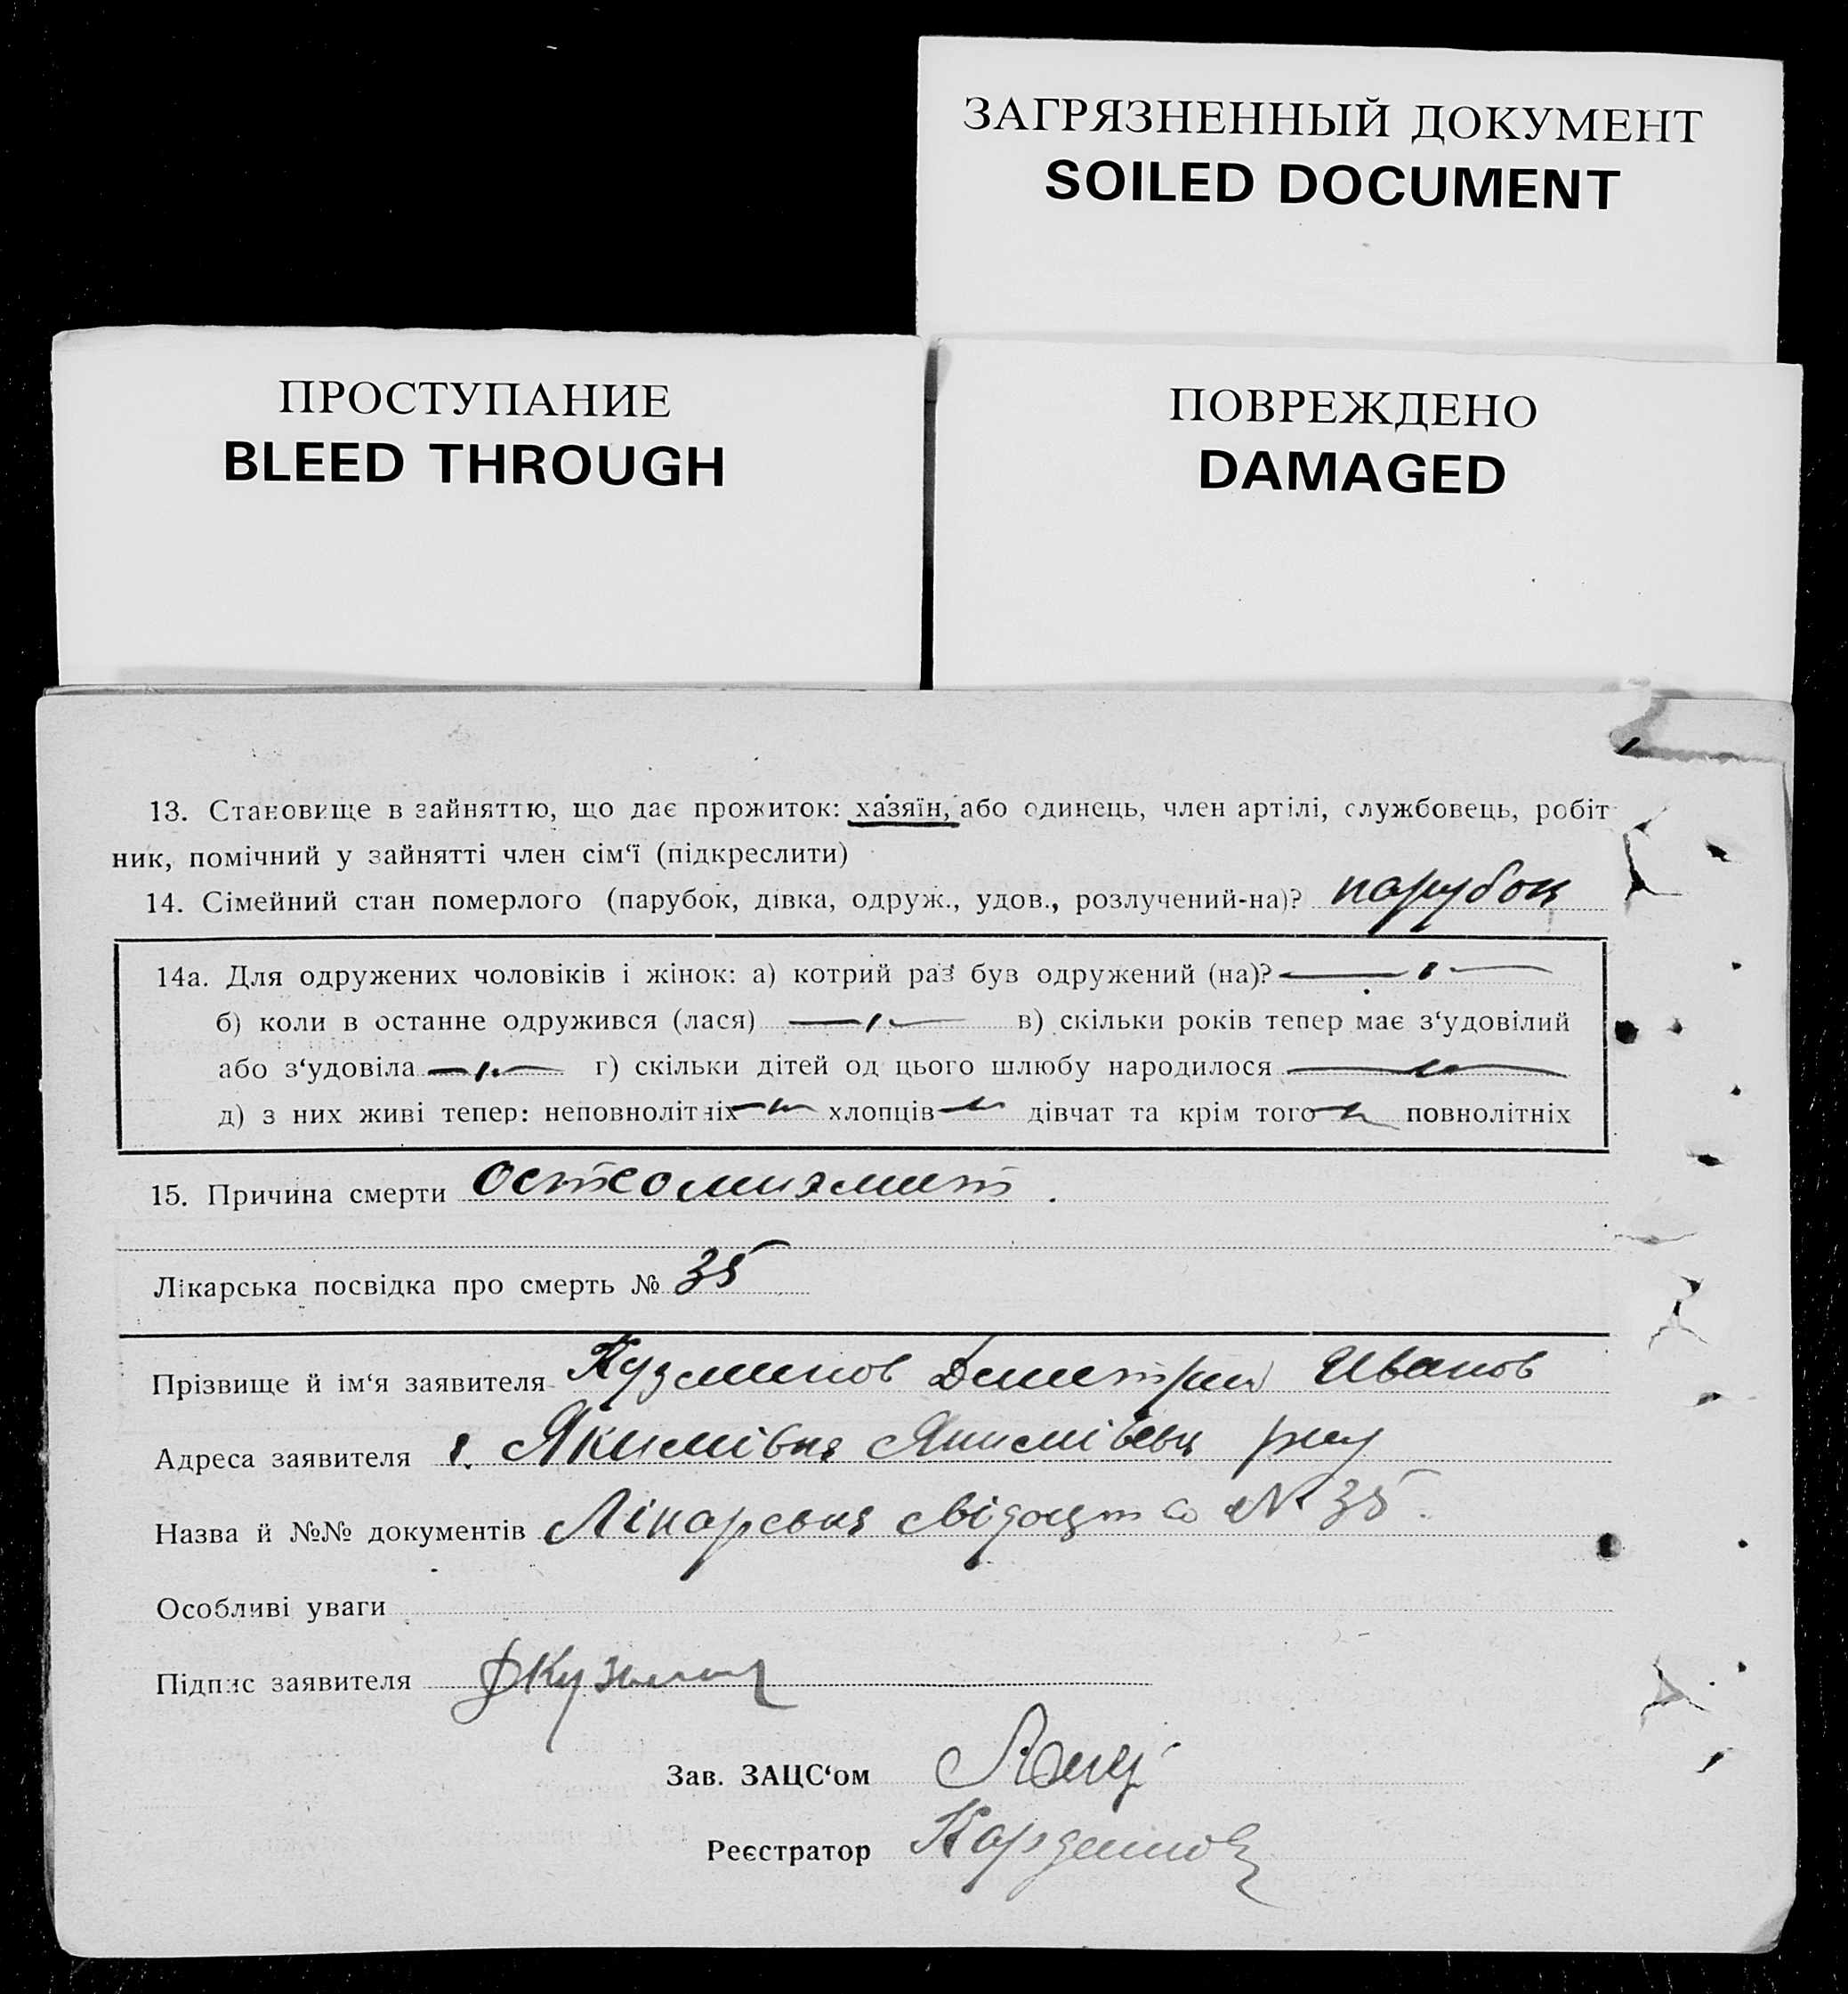 ЗАГРЯЗНЕННЫЙ ДОКУМЕНТ
SOILED DOCUMENT
ПРОСТУПАНИЕ
BLEED THROUGH
ПОВРЕЖДЕНО
DAMAGED
13. Становище в зайняттю, що дає прожиток: хазяїн, або одинець, член артілі, службовець, робіт
ник, помічний у зайнятті член сім‘ї (підкреслити)
14. Сімейний стан померлого (парубок, дівка, одруж., удов., розлучений-на)? парубок
14а. Для одружених чоловіків і жінок: а) котрий раз був одружений (на)?
б) коли в останне одружився (лася) в) скільки років тепер має з‘удовілий
або з‘удовіла г) скільки дітей од цього шлюбу народилося
д) з них живі тепер: неповнолітніх хлопців дівчат та крім того повнолітніх
15. Причина смерти Остеомиэлит.
Лікарська посвідка про смерть № 35
Прізвище й ім‘я заявителя Кузьминов Дмитрий Иванов
Адреса заявителя Якимівка
Назва й №№ документів Лікарська N 35.
Особливі уваги
Підпис заявителя
Зав. ЗАЦС‘ом
Реєстратор